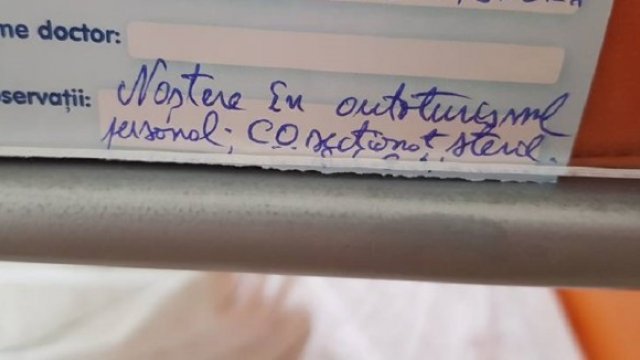 me doctor:
servații: Naștere în autoturismul
personal; CO secționat steril.